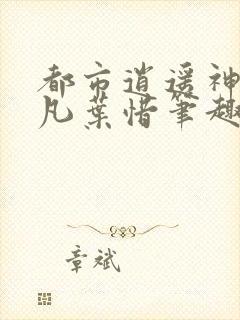 都市逍遥神
凡葉惜筆趣
章斌